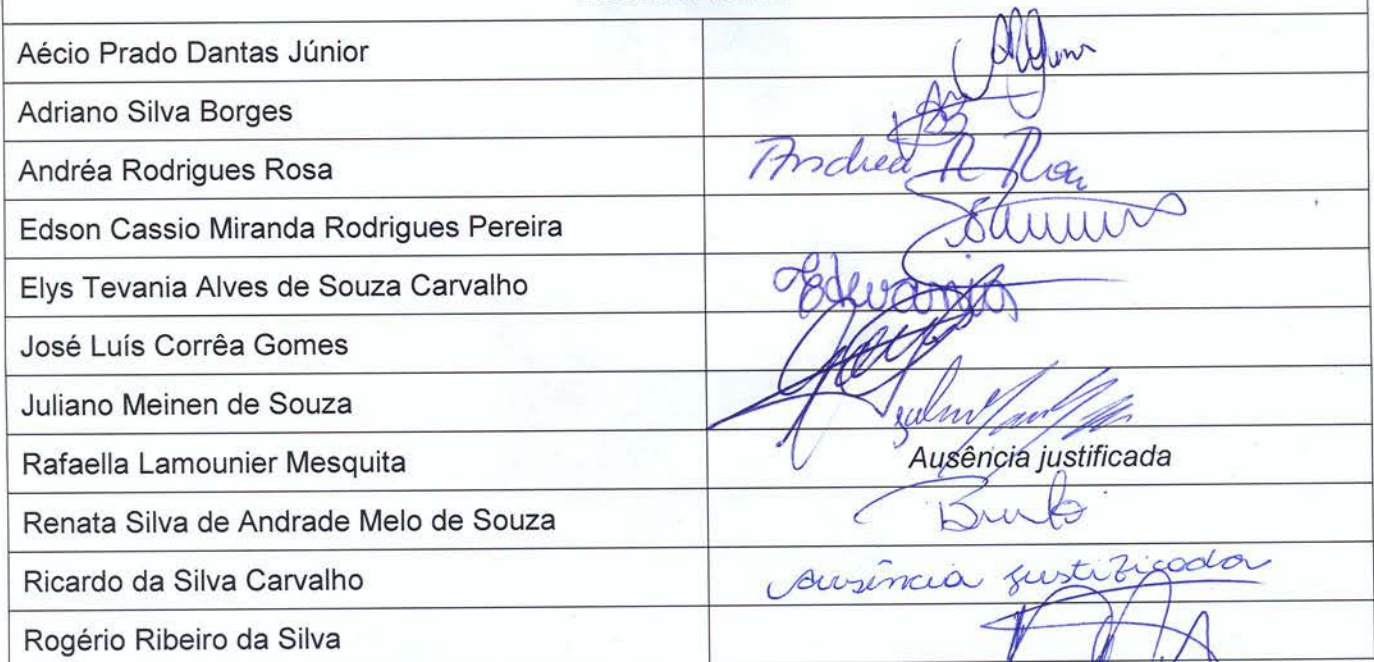 Aécio Prado Dantas Júnior
Adriano Silva Borges
Andréa Rodrigues Rosa Andrea R Rosa
Edson Cassio Miranda Rodrigues Pereira
Elys Tevania Alves de Souza Carvalho
José Luís Corrêa Gomes
Juliano Meinen de Souza
Rafaella Lamounier Mesquita Ausência justificada
Renata Silva de Andrade Melo de Souza
Ricardo da Silva Carvalho Ausência justificada
Rogério Ribeiro da Silva